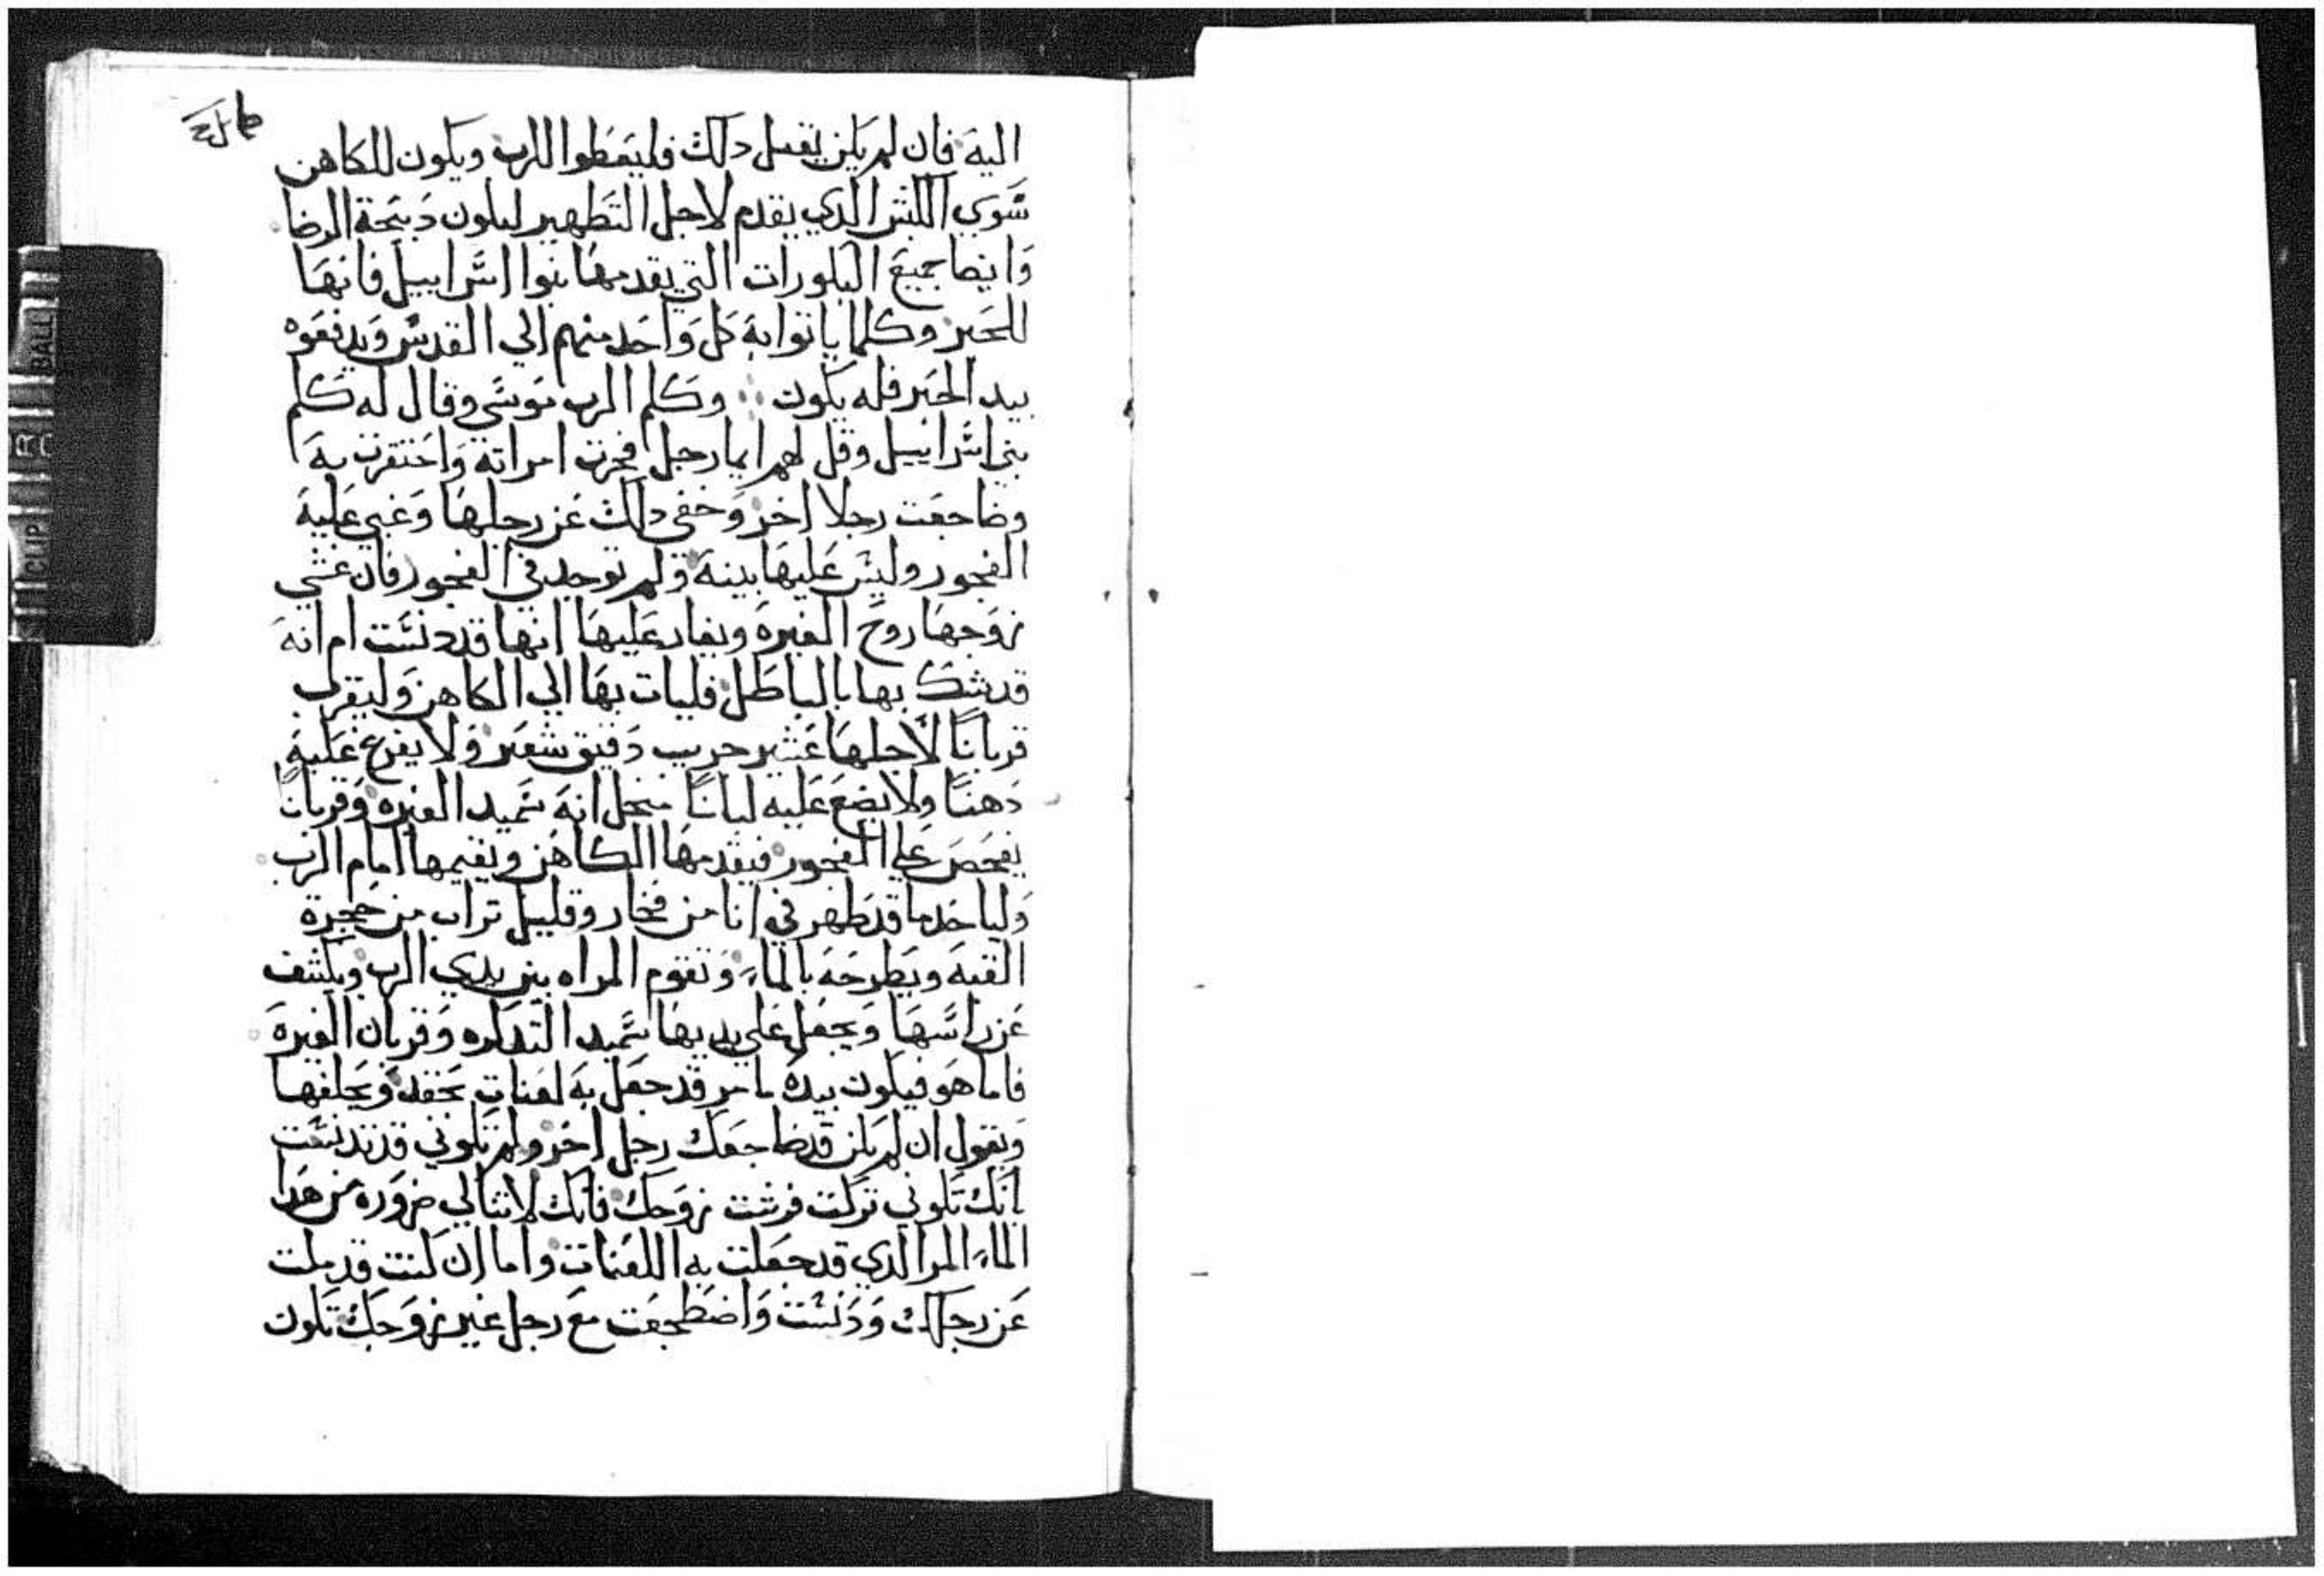 اليه فان لم يكن يقبل دلك فليعطوا للرب ويكون للكاهن
سَوي الكبش الدي يقدم لاجل التطهير ليكون دبيحة الرضا
وايضا جميع البكورات التي يقدمها بنوا اسراييل فانها
للحبر وكلما ياتوا به كل واحد منهم الي القدس ويدفعوه
بيد الحبر فله يكون وكلم الرب موسي وقال له كلم
بني اسراييل وقل لهم ايما رجل فجرت امراته واحتقرت به
وضاجعت رجلا اخر وخفي دلك عن رجلها وغبي عليه
الفجور وليس عليها بينه ولم توجد في الفجور فان غشي
زوجها روح الغيره ويغار عليها انها قد دنست ام انه
قد شك بها بالباطل فليات بها الي الكاهن وليقرب
قرباناً لاجلها عشير جريب دقيق شعير ولا يفرع عليه
دهناً ولا يضع عليه لباناً منجل انه سميد الغيره وقرباناً
يفحص علي الفجور فيقدمها الكاهن ويقيمها امام الرب
ولياخد ما قد طهر في انا من فخار وقليل تراب من حجرة
القبه ويطرحه بالماء وتقوم المراه بين يدي الرب ويكشف
عن راسها ويجعل علي يديها سميد التدكره وقربان الغيره
فاما هو فيكون بيده ما مر قد جعل به لعنات بحقد ويحلفها
ويقول ان لم يكن قد ضاجعك رجل اخر ولم تكوني قد تدنست
بانك تكوني تركت فرشت زوجك فانك لا تنالي ضروره من هدا
الماء المر الدي قد جعلت به اللعنات واما ان كنت قد ملت
عن رجلك ودنست واضطجعت مع رجل غير زوجك تكون